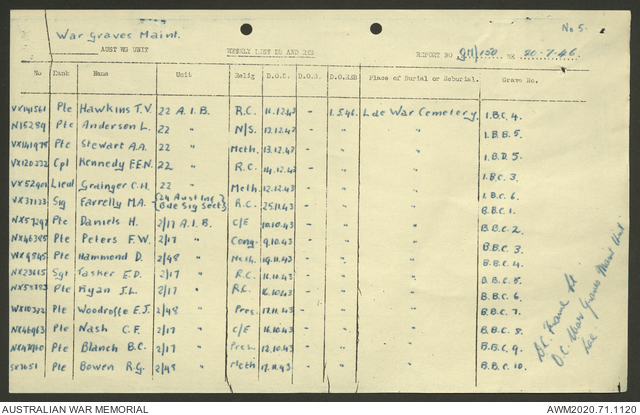 No 5.
War Graves Maint.
AUST WG UNIT WEEKLY LIST DB AND REB REPORT NO GM/150 WE 20-7-46.
No Rank Name Unit Relig D.O.D. D.O.B. D.O.REB Place of Burial or Reburial. Grave No.
VX141561 Pte Hawkins T.V. 22 A.I.B. R.C. 11.12.43 - 1.5.46. Lae War Cemetery. I.B.C. 4.
N15284 Pte Anderson L. 22 " N/S. 12.12.43 - " " I.B.B. 5.
VX141975 Pte Stewart A.A. 22 " Meth. 13.12.43 - " " I.B.D. 5.
VX120232 Cpl Kennedy F.E.N. 22 " R.C. 14.12.43 - " " I.B.C. 3.
VX52401 Lieut Grainger C.H. 22 " Meth. 12.12.43 - " " I.B.C. 6.
VX37133 Sig Farrelly M.A. {24 Aust Inf Bde Sig Sect} R.C. 25.11.43 - " " B.B.C. 1.
NX57297 Pte Daniels H. 2/17 A.I.B. C/E 10.10.43 - " " B.B.C. 2.
Pte Peters F.W. 2/17 " Cong. 9.10.43 - " " B.B.C. 3.
Pte Hammond D. 2/48 " Meth. 19.11.43 - " " B.B.C. 4.
NX23615 Sgt Tasker E.D. 2/17 " R.C. 16.10.43 - " " B.B.C. 5.
Pte Ryan J.L. 2/17 " R.C. 16.10.43 - " " B.B.C. 6.
Pte Woodroffe E.J. 2/48 " Pres. 17.11.43 - " " B.B.C. 7.
NX46963 Pte Nash C.F. 2/17 " C/E 16.10.43 - " " B.B.C. 8.
Pte Blanch B.C. 2/17 " Pres. 12.10.43 - " " B.B.C. 9.
Pte Bowen R.G. 2/48 " Meth 17.11.43 - " " B.B.C. 10.
O.C. War Graves Maint Unit
Lae
AUSTRALIAN WAR MEMORIAL AWM2020.71.1120